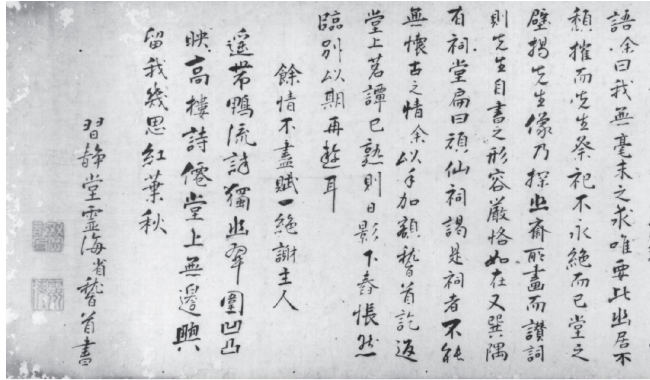 語余曰我無毫末之求唯要此幽居不
頽摧而先生祭祀不永絶而已堂之
壁揭先生像乃探幽齋所畫而讃詞
則先生自書之形容嚴恪如在又巽隅
有祠堂扁曰頑仙祠謁是祠者不能
無懷古之情余以手加額稽首訖返
堂上茗譚已熟則日影下舂悵然
臨別以期再遊耳
餘情不盡賦一絶謝主人
遥帯鴨流詩獨幽翠圍凹凸
映高樓詩僊堂上無邊興
留我幾思紅葉秋
習静堂靈海省稽首書